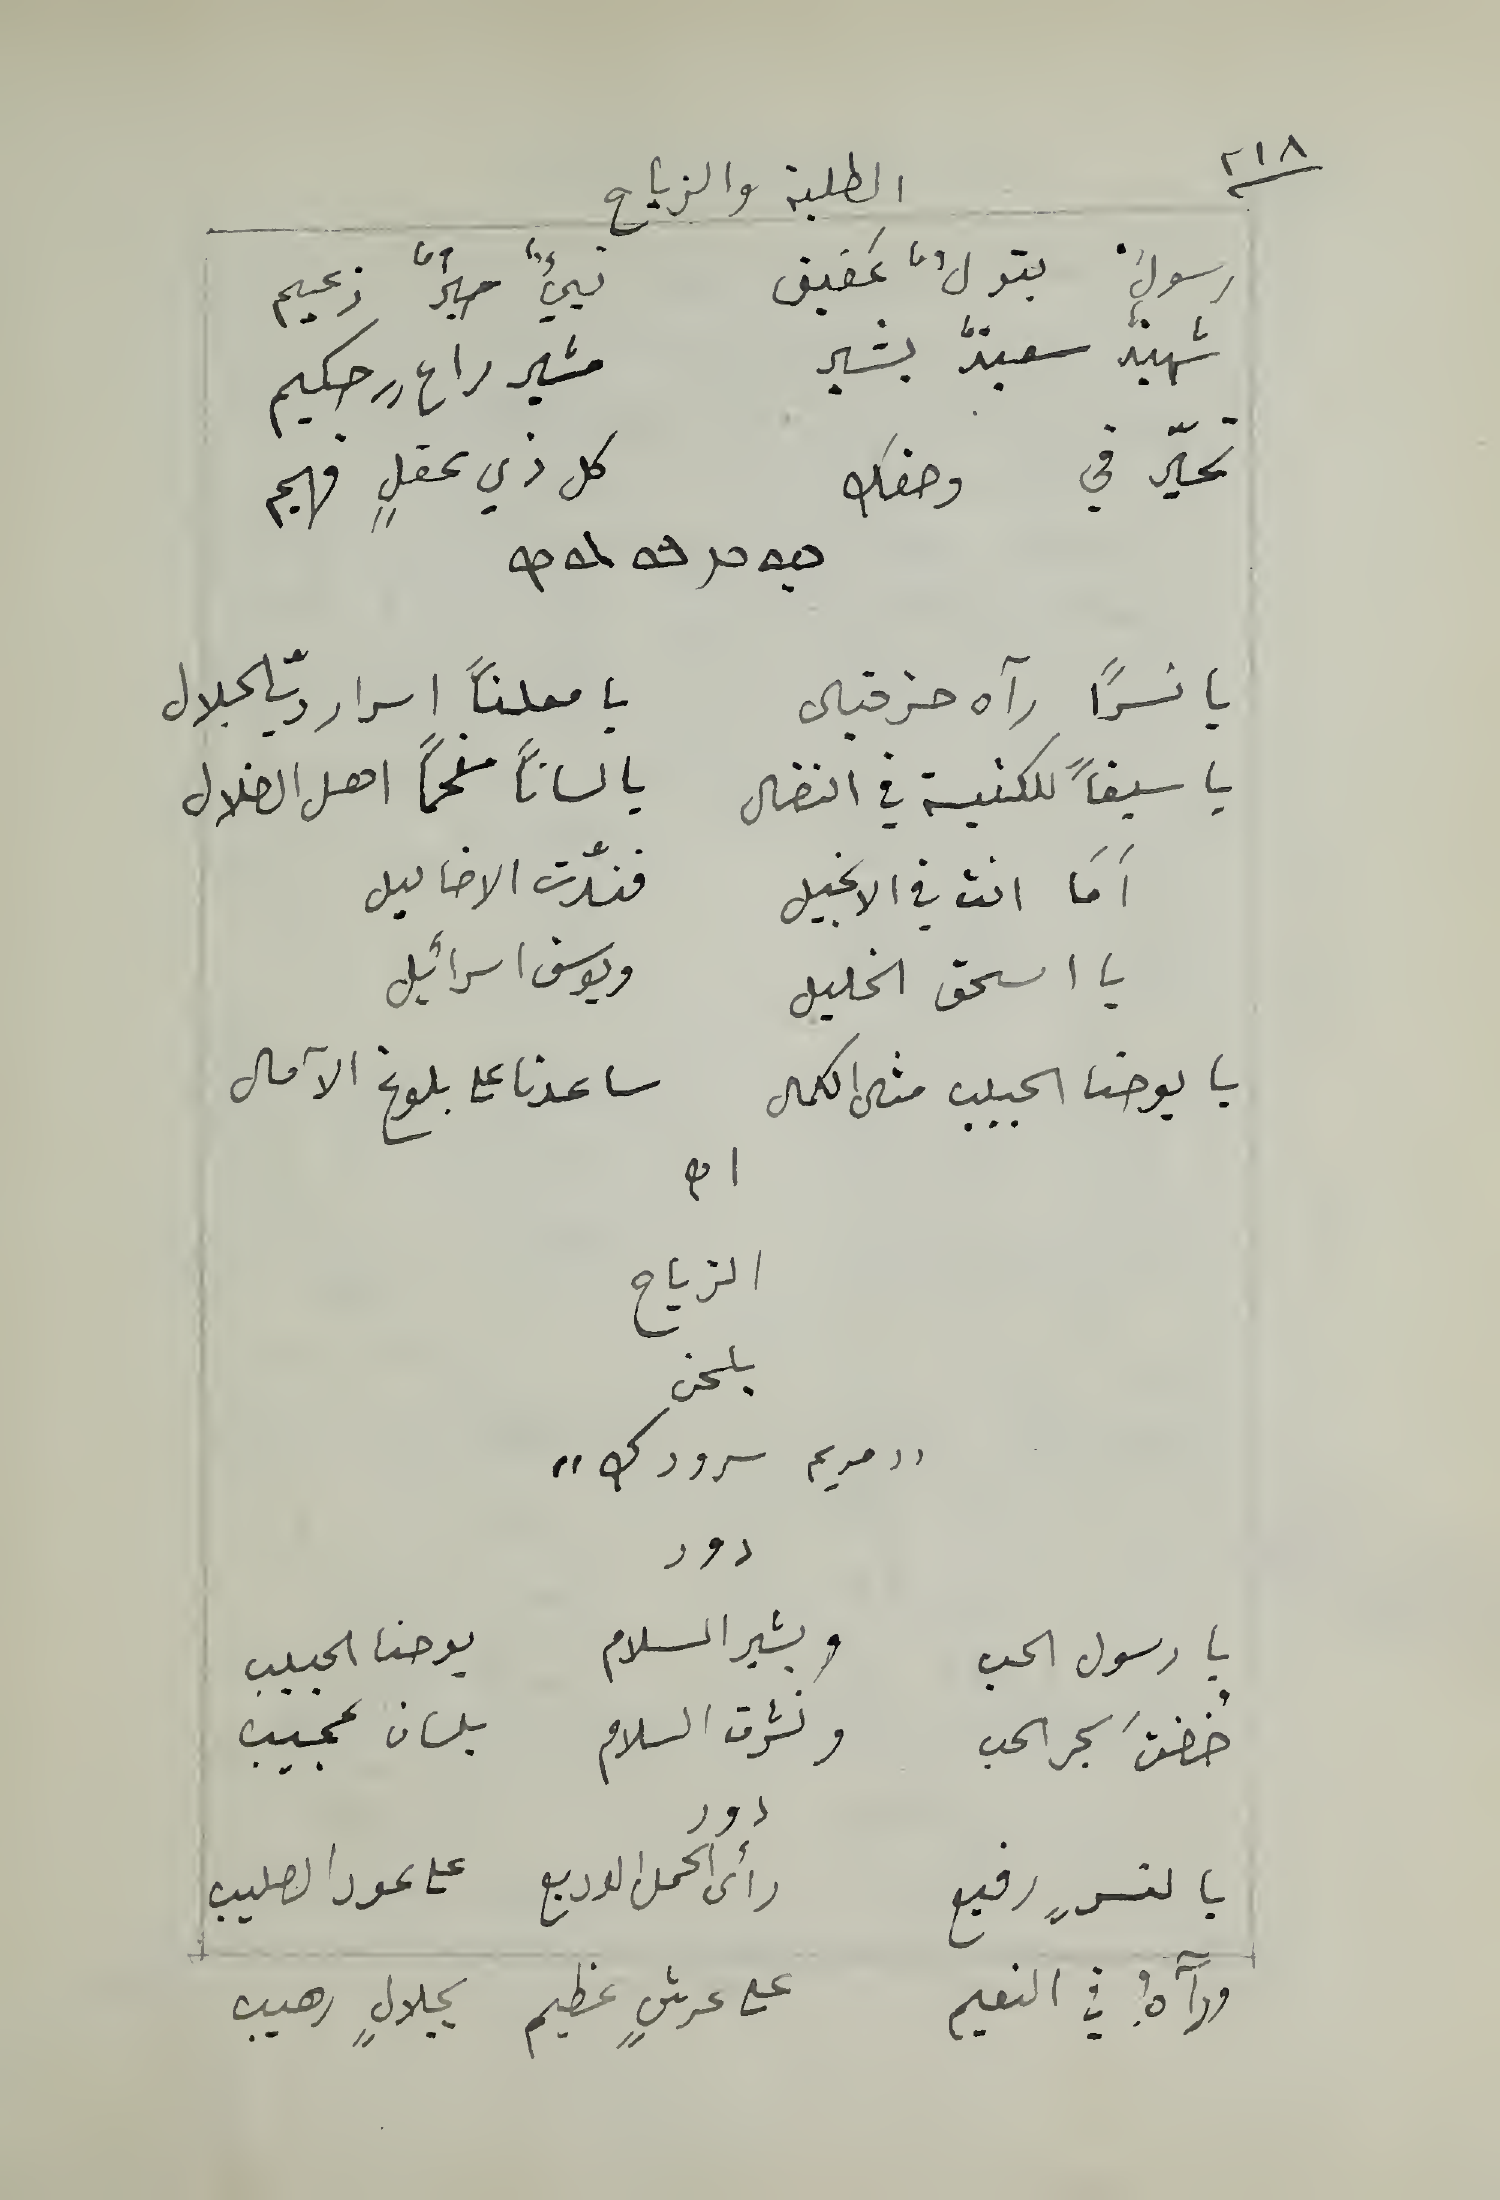 ٢١٨
الطلبة والزياح
رسولٌ بتولٌ عفيف نبيٌّ حبرٌ زعيم
شهيدٌ سعيدٌ بشير مشير راعٍ حكيم
تحيّر في وصفك كل ذي عقلٍ فهيم
يا نسرًا رآه حزقيال يا معلناً اسرار ربّ الجلال
يا سيفاً للكنيسة في النضال يا لساناً مفحماً اهل الضلال
أمَا انت في الانجيل فندّت الاضاليل
يا اسحق الخليل ويوسف اسرائيل
يا يوحنا الحبيب مثال الكمال ساعدنا على بلوغ الآمال
الزياح
بلحن
"مريم سرودك"
دور
يا رسول الحب وبشير السلام يوحنا الحبيب
خُضتَ بحر الحب ونشرت السلام بلسان عجيب
دور
يا لنسرٍ رفيع رأى الحمل الوديع على عود الصليب
ورآهُ في النعيم على عرشٍ عظيم بجلالٍ رهيب